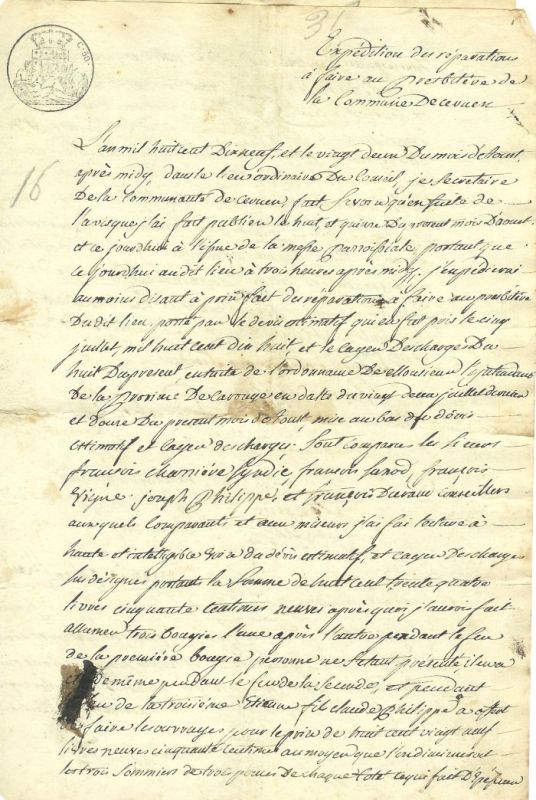 C. 80
31
Expédition des réparations
à faire au presbitère de
la Commune De cevuen
16
L'an mil huit cent Dix neuf, et le vingt deux Du mois de Aout,
après midy dans le lieu ordinaire Du Conseil, je Secretaire
De la Communauté de cevuen, fait Scavoir qu'en suite de
l'avis que j'ai fait publier le huit, et quinze Du present mois D'aoust
et ce jourdhui à l'issue de la messe parroissiale portant que
ce jourdhui audit lieu à trois heures après midy, j'expedierai
au moins disant à prix fait des réparations à faire au presbitère
Dudit lieu, porté par le devis estimatif qui a été fait le cinq
juillet, mil huit cent dix huit, et le Cayer Des charges Du
huit Du present, ensuite de l'ordonnance De Monsieur l'intendant
De la province De Carouge en datte du vingt deux juillet dernier
et douze Du present mois de Aout mise au bas du devis
estimatif et Cayer des charges. Sont comparus les Sieurs
françois charrière Syndic, françois Sunod, françois
Vigne, joseph Philippe, et françois Duvand Conseillers
auxquels Comparants et aux miseurs j'ai fai lecture à
haute et intelligible voix du dévis estimatif, et cayer Des charges
sus désignés portant la Somme de huit cent trente quatre
livres cinquante Centimes neuves après quoi j'aurois fait
allumer trois bougies l'une après l'autre pendant le feu
de la première bougie personne ne S'etant présenté il en a
été de même pendant le feu de la Seconde, et pendant
feu de la troisième Etienne fil Claude Philippe a offert
faire les ouvrages pour le prix de huit cent vingt neuf
livres neuves cinquante centime au moyen que l'on diminueroit
les trois Sommiers de trois pouces De chaque Coté ce qui fait D'épaisseur